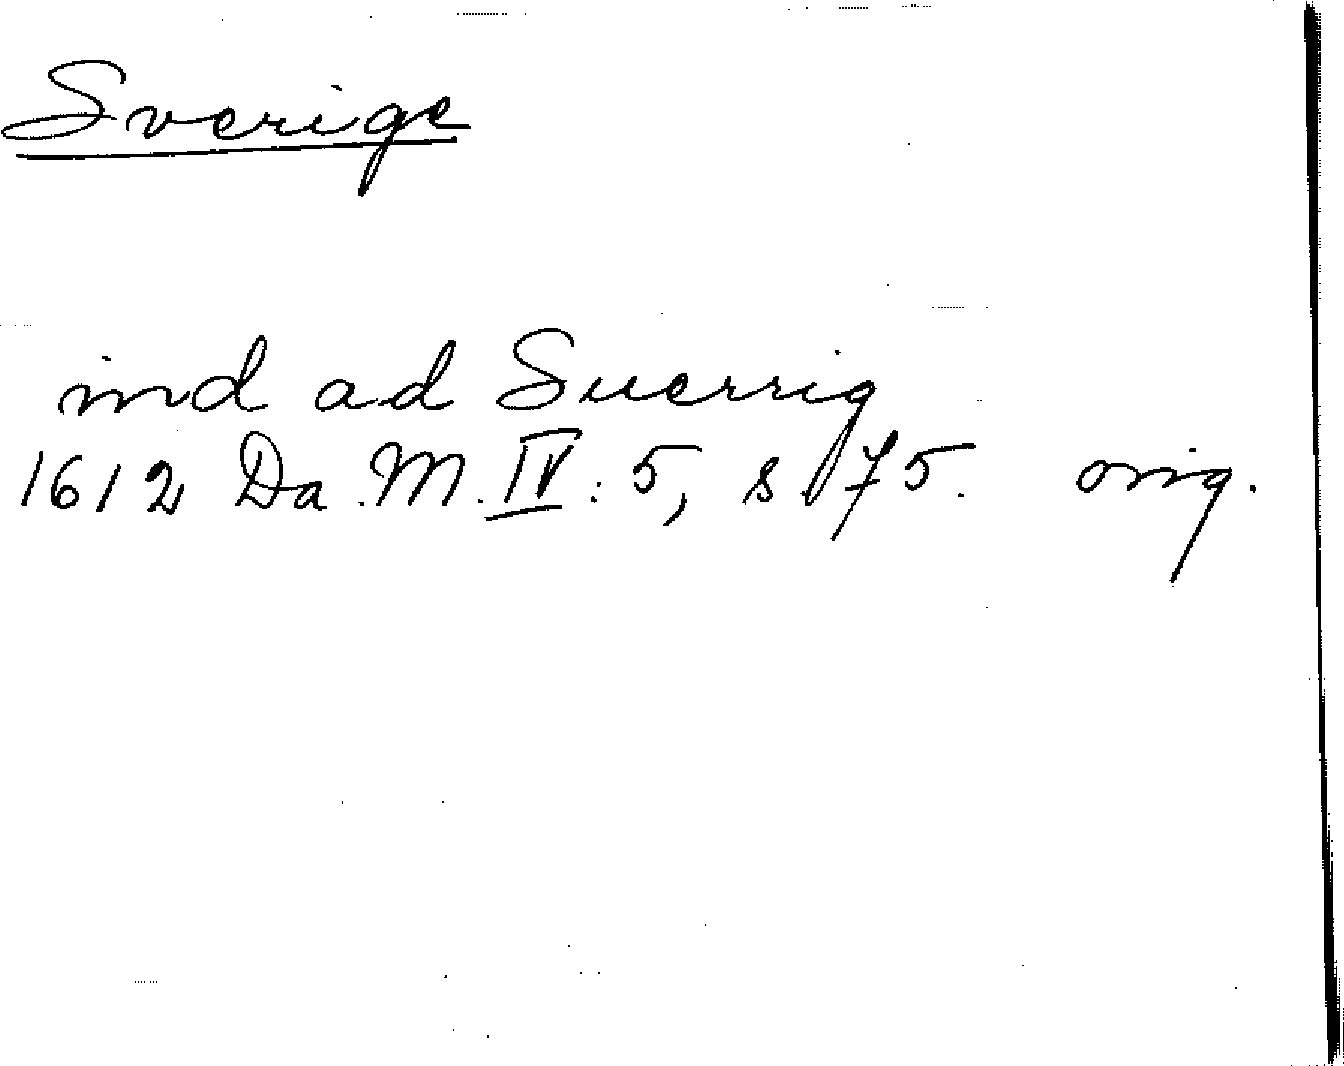 Sverige
ind ad Suerrig
1612 Da. M. IV: 5, s 75. orig.